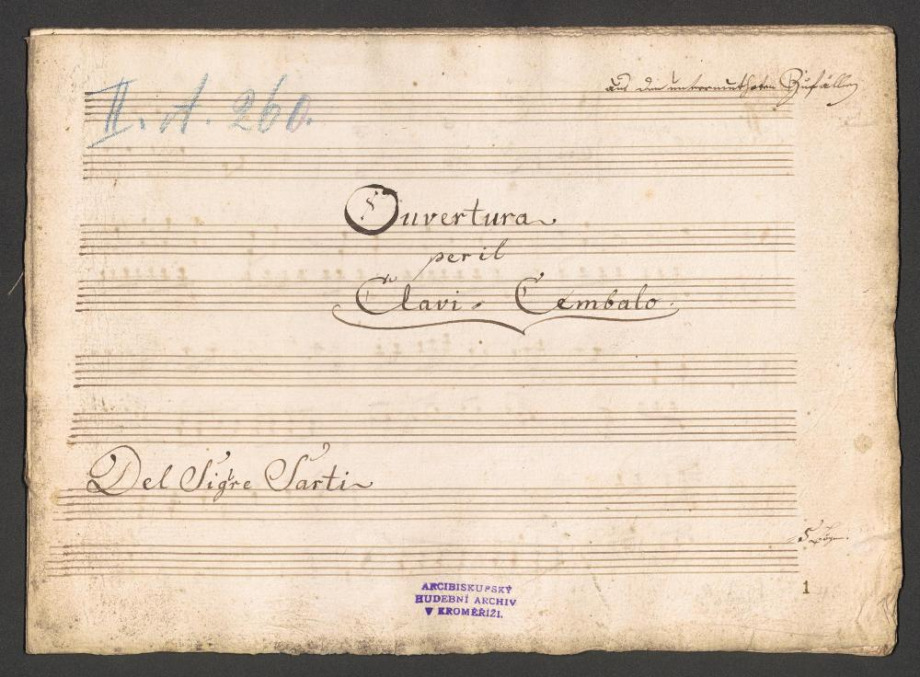 aus den unvermutheten Zufällen
II. A. 260.
Ouvertura
per il
Clavi - Cembalo.
Del Sigre Sarti
5
ARCIBISKUPSKÝ
HUDEBNÍ ARCHIV
V KROMĚŘÍŽI.
1